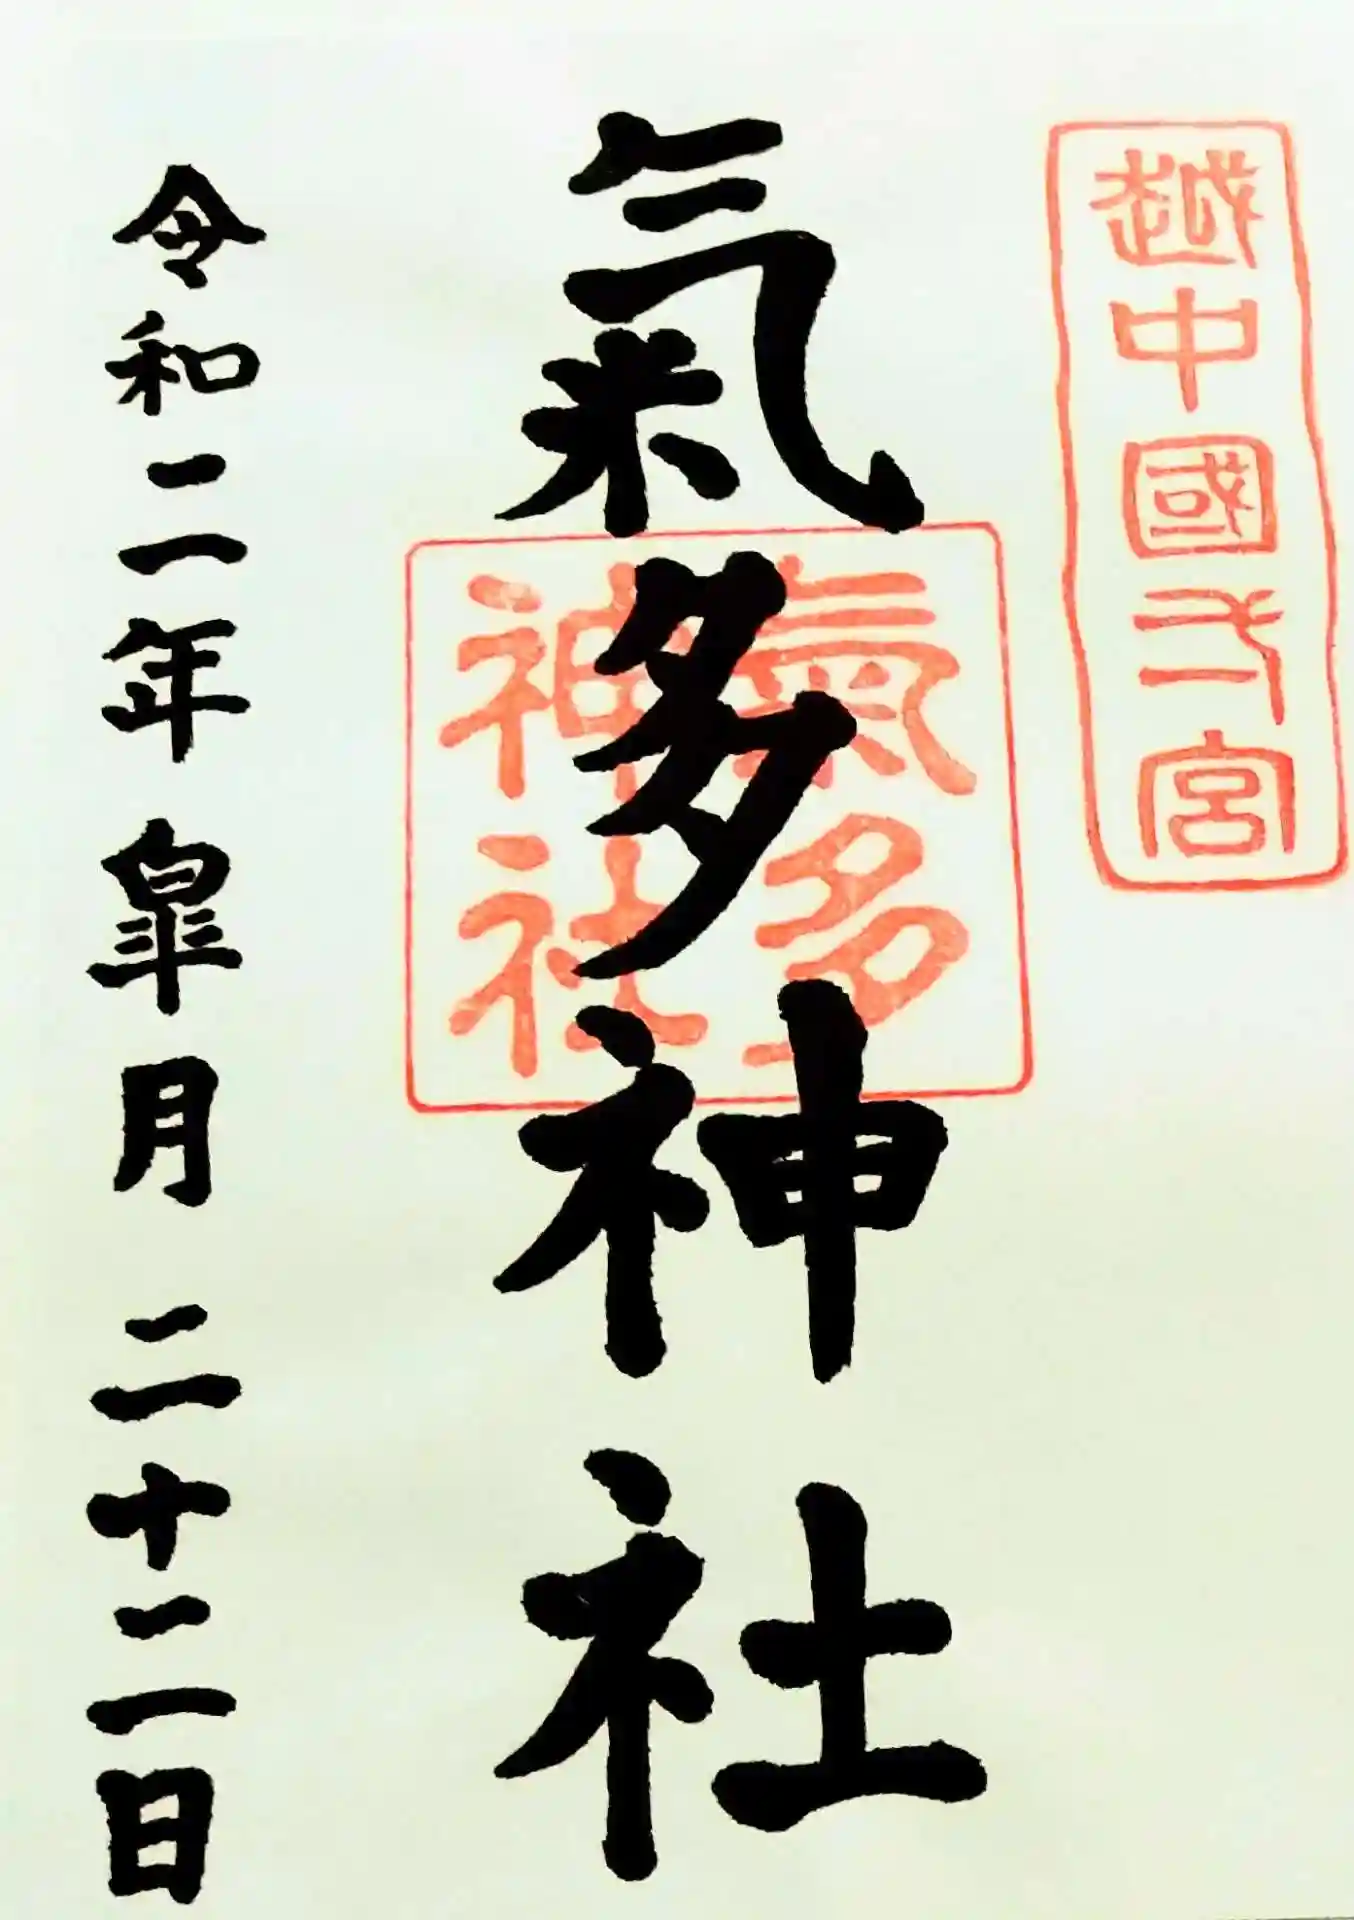 越中國一宮
氣多神社
氣多
神社
令和二年 皐月 二十二日